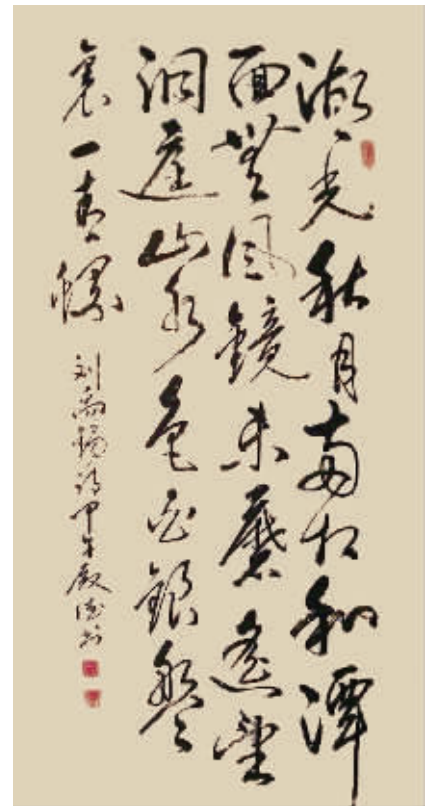 湖光秋月两相和潭
面無风鏡未磨遥望
洞庭山水色白銀盤
裏一青螺
刘禹锡诗甲午